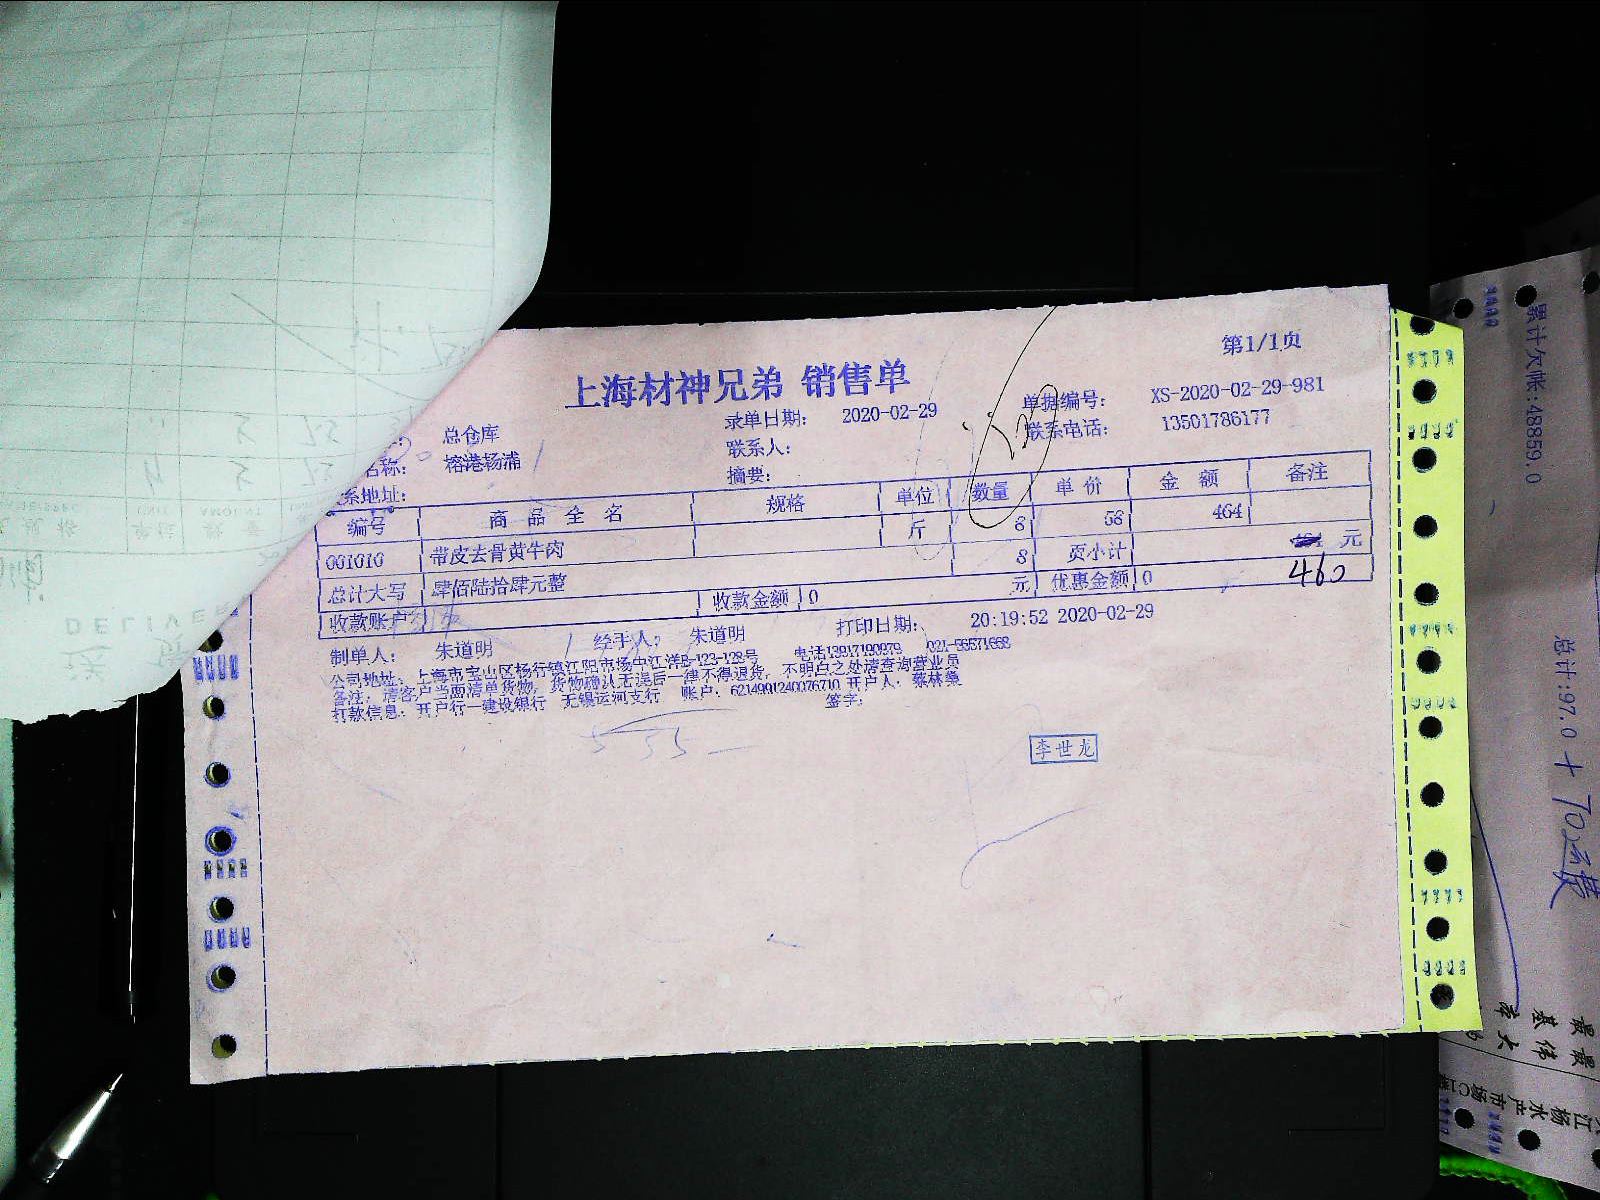 第1/1页
上海材神兄弟 销售单
录单日期: 2020-02-29 单据编号: XS-2020-02-29-981
总仓库 联系人: 联系电话: 13501786177
名称: 榕港杨浦 摘要:
系地址:
编号 商品全名 规格 单位 数量 单价 金额 备注
001010 带皮去骨黄牛肉 斤 8 58 464
8 页小计 元
总计大写 肆佰陆拾肆元整 元 优惠金额 0 460
收款账户 收款金额 0
制单人: 朱道明 经手人: 朱道明 打印日期: 20:19:52 2020-02-29
公司地址: 上海市宝山区杨行镇江阳市场中江洋B-123-128号 电话13917190979
备注: 请客户当面清单货物, 货物确认无误后一律不得退货, 不明白之处请查询营业员
打款信息: 开户行—建设银行 无锡运河支行 账户: 6214991240076710 开户人: 签字:
李世龙
累计欠帐:48859.0
总计:97.0 +
DELIVER